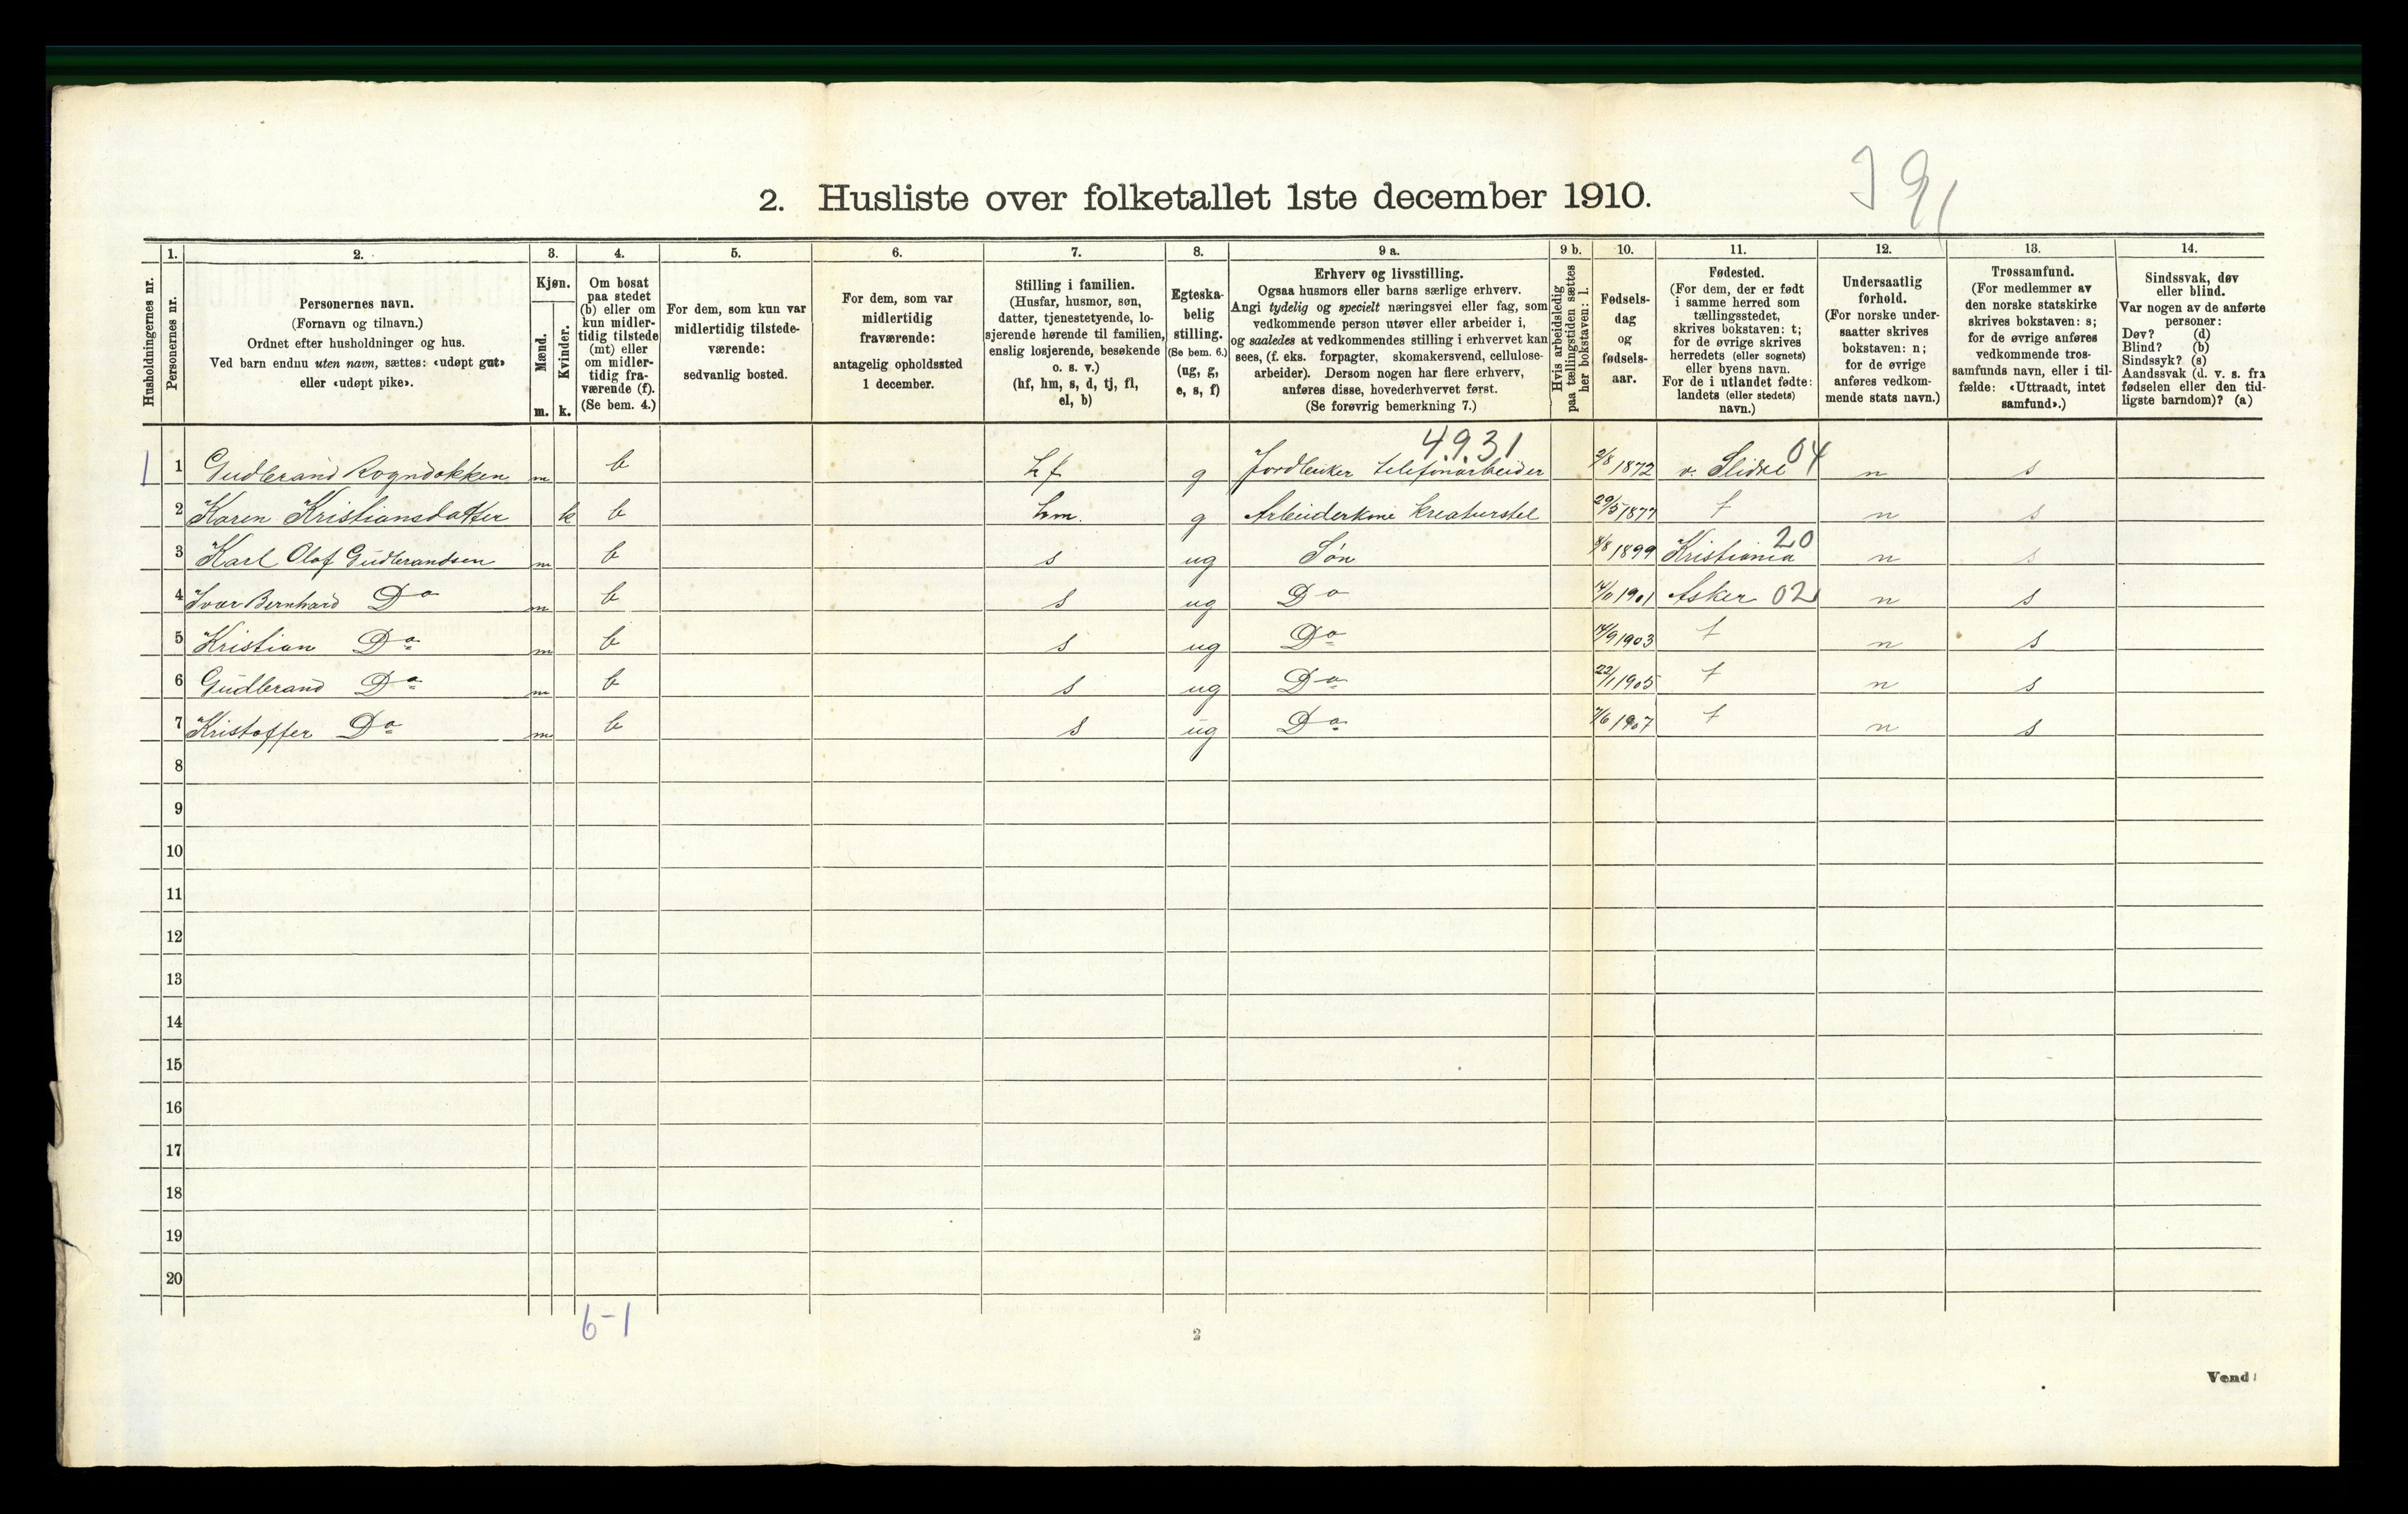 2. Husliste over folketallet 1ste december 1910.
Husholdningernes nr.
1. Personernes nr.
2. Personernes navn.
(Fornavn og tilnavn.)
Ordnet efter husholdninger og hus.
Ved barn endnu uten navn, sættes: «udøpt gut»
eller «udøpt pike».
3. Kjøn.
Mænd. m.
Kvinder. k.
4. Om bosat
paa stedet
(b) eller om
kun midler-
tidig tilstede
(mt) eller
om midler-
tidig fra-
værende (f).
(Se bem. 4.)
5. For dem, som kun var
midlertidig tilstede-
værende:
sedvanlig bosted.
6. For dem, som var
midlertidig
fraværende:
antagelig opholdssted
1 december.
7. Stilling i familien.
(Husfar, husmor, søn,
datter, tjenestetyende, lo-
sjerende hørende til familien,
enslig losjerende, besøkende
o. s. v.)
(hf, hm, s, d, tj, fl,
el, b)
8. Egteska-
belig
stilling.
(Se bem. 6.)
(ug, g,
e, s, f)
9 a. Erhverv og livsstilling.
Ogsaa husmors eller barns særlige erhverv.
Angi tydelig og specielt næringsvei eller fag, som
vedkommende person utøver eller arbeider i,
og saaledes at vedkommendes stilling i erhvervet kan
sees, (f. eks. forpagter, skomakersvend, cellulose-
arbeider). Dersom nogen har flere erhverv,
anføres disse, hovederhvervet først.
(Se forøvrig bemerkning 7.)
9 b. Hvis arbeidsledig
paa tællingstiden sættes
her bokstaven: l.
10. Fødsels-
dag
og
fødsels-
aar.
11. Fødested.
(For dem, der er født
i samme herred som
tællingsstedet,
skrives bokstaven: t;
for de øvrige skrives
herredets (eller sognets)
eller byens navn.
For de i utlandet fødte:
landets (eller stedets)
navn.)
12. Undersaatlig
forhold.
(For norske under-
saatter skrives
bokstaven: n;
for de øvrige
anføres vedkom-
mende stats navn.)
13. Trossamfund.
(For medlemmer av
den norske statskirke
skrives bokstaven: s;
for de øvrige anføres
vedkommende tros-
samfunds navn, eller i til-
fælde: «Uttraadt, intet
samfund».)
14. Sindssvak, døv
eller blind.
Var nogen av de anførte
personer:
Døv? (d)
Blind? (b)
Sindssyk? (s)
Aandssvak (d. v. s. fra
fødselen eller den tid-
ligste barndom)? (a)
4.9.31
1 1 Gudbrand Rogndokken m b hf g Jordbruker telefonarbeider 2/8 1872 v. Slidre 04 n s
2 Karen Kristiansdatter k b hm. g Arbeiderkone kreaturstel 29/5 1877 t n s
3 Karl Olaf Gudbrandsen m b s ug Søn 8/8 1899 Kristiania 20 n s
4 Ivar Bernhard Do m b s ug Do 1901 Asker 02 n s
5 Kristian Do m b s ug Do 14/9 1903 t n s
6 Gudbrand Do m b s ug Do 22/1 1905 t n s
7 Kristoffer Do m b s ug Do 7/6 1907 t n s
8
9
10
11
12
13
14
15
16
17
18
19
20
6-1
2
Vend